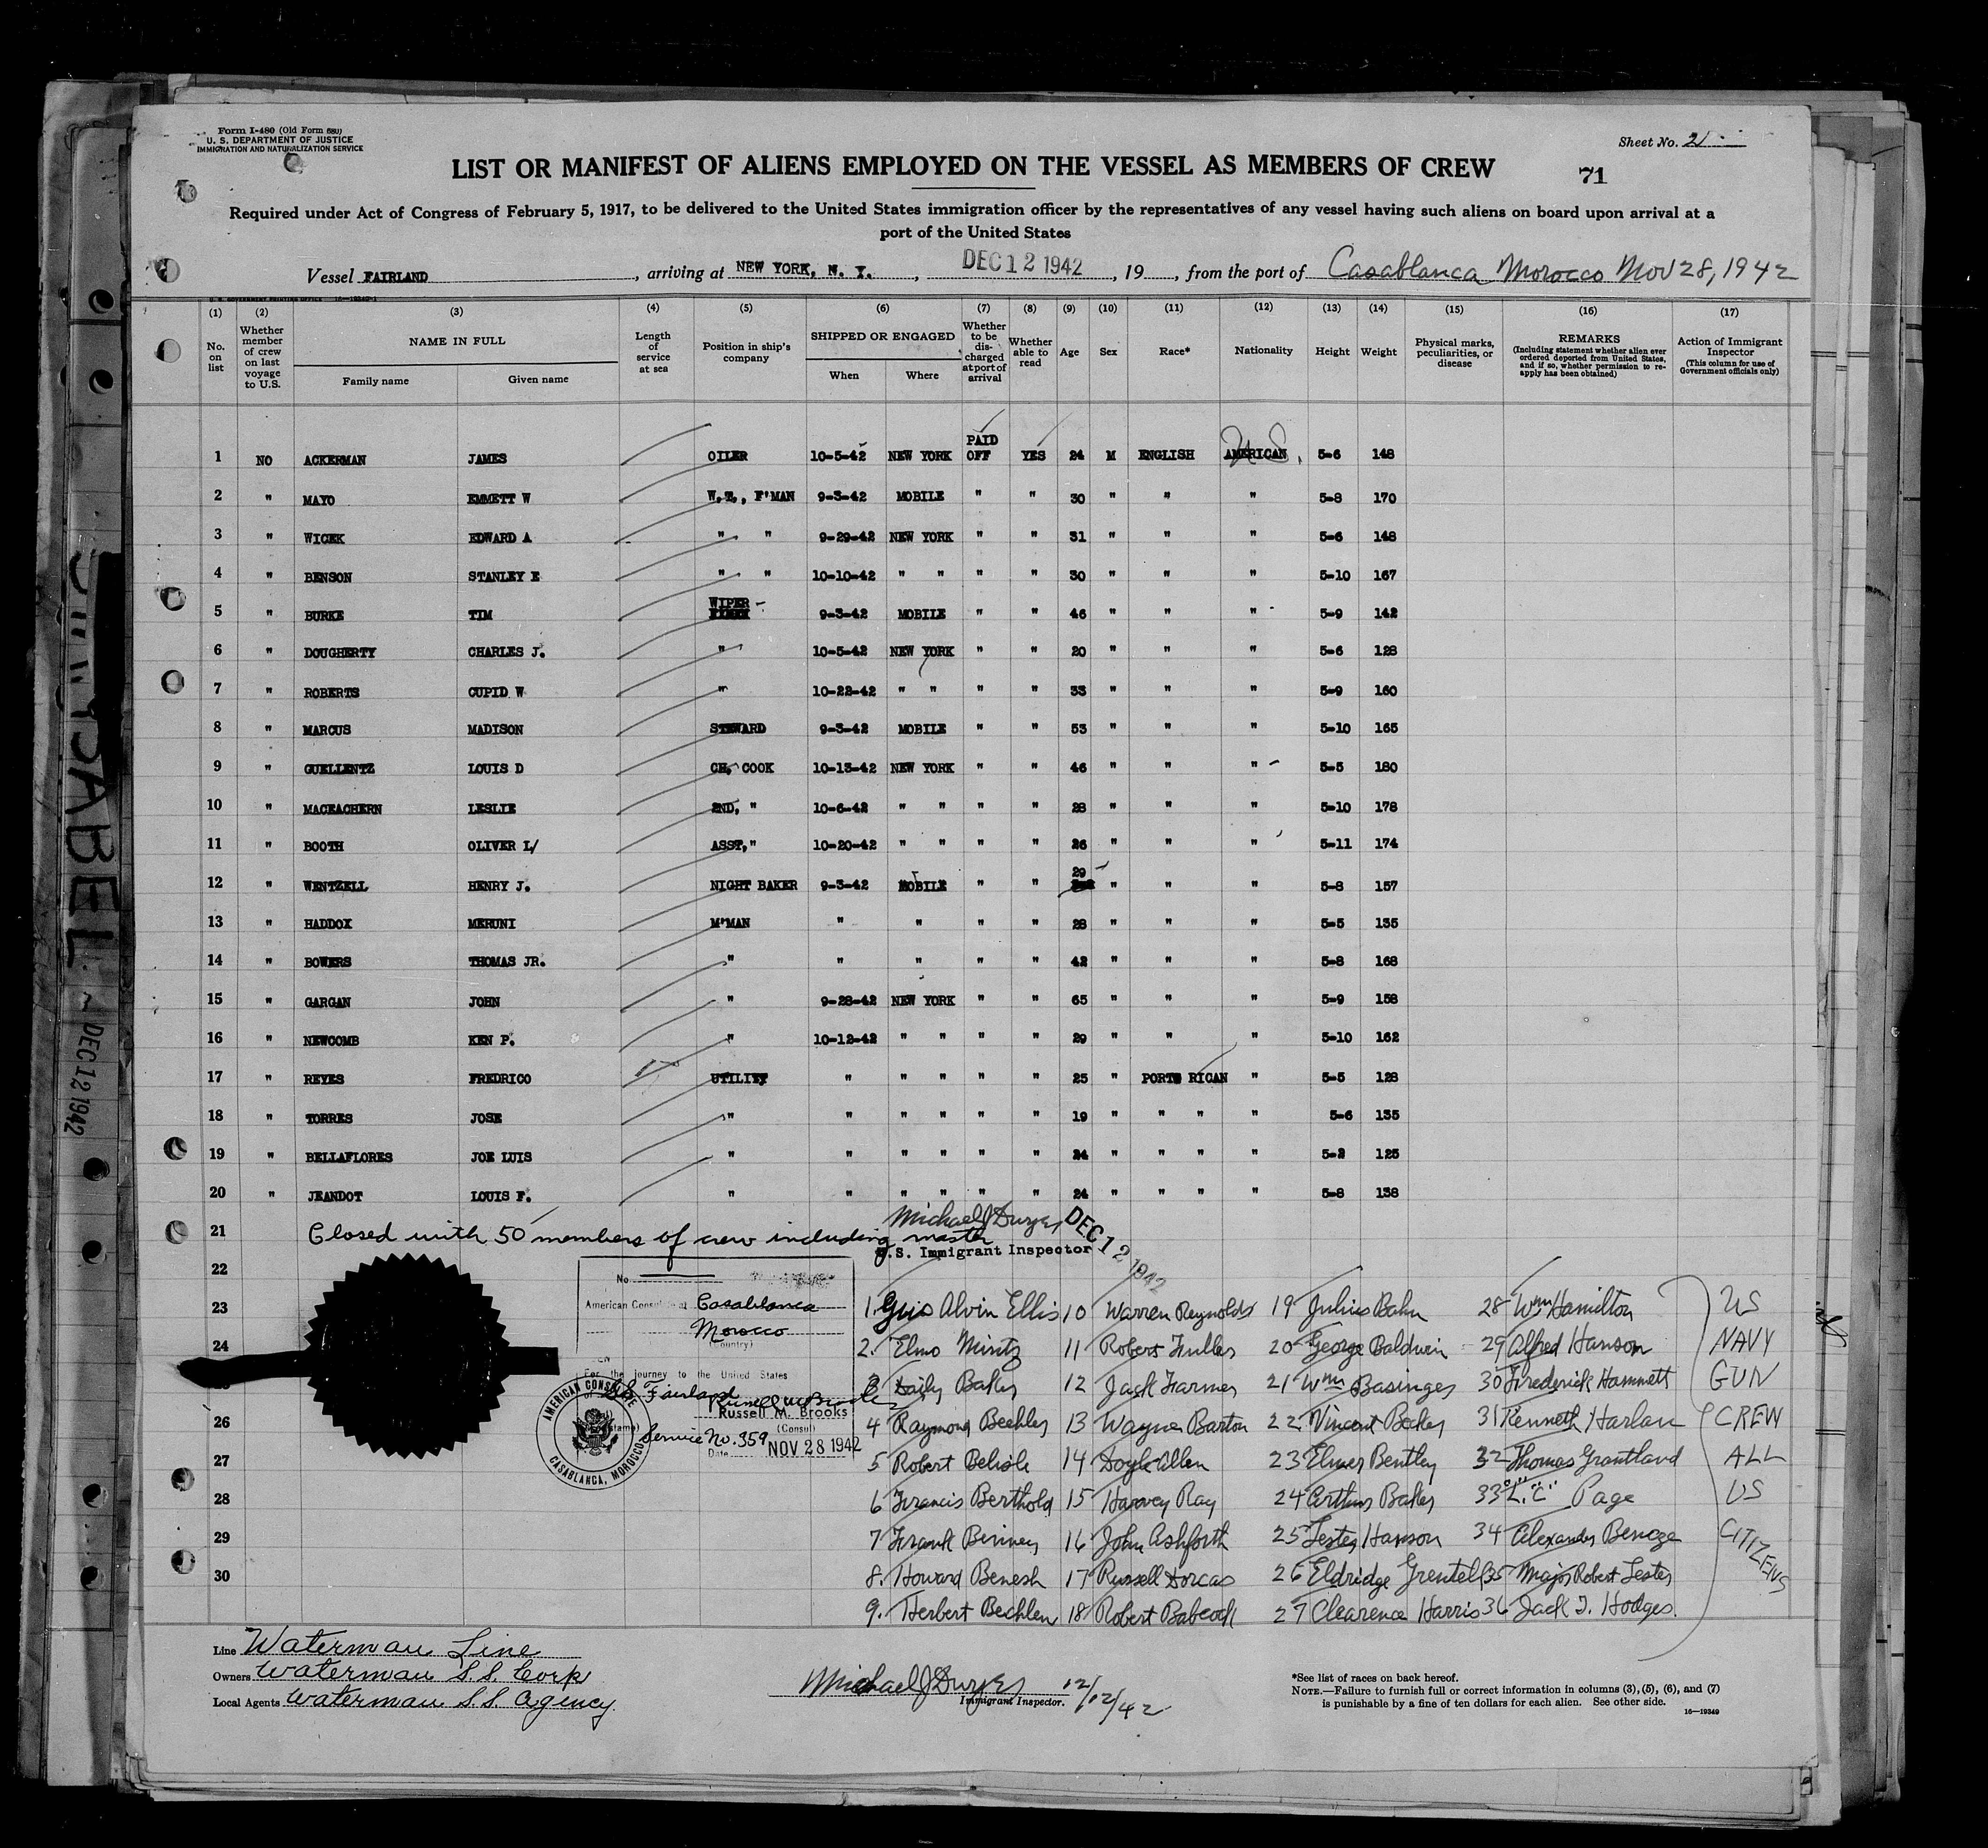 Form I-480 (Old Form 680)
U. S. DEPARTMENT OF JUSTICE
IMMIGRATION AND NATURALIZATION SERVICE
Sheet No. 2
LIST OR MANIFEST OF ALIENS EMPLOYED ON THE VESSEL AS MEMBERS OF CREW
71
Required under Act of Congress of February 5, 1917, to be delivered to the United States immigration officer by the representatives of any vessel having such aliens on board upon arrival at a
port of the United States
Vessel FAIRLAND, arriving at NEW YORK, N. Y., DEC 12 1942, 19, from the port of Casablanca Morocco Nov 28, 1942
U. S. GOVERNMENT PRINTING OFFICE 16—19349-1
(1) No. on list
(2) Whether member of crew on last voyage to U.S.
(3) NAME IN FULL Family name Given name
(4) Length of service at sea
(5) Position in ship's company
(6) SHIPPED OR ENGAGED When Where
(7) Whether to be discharged at port of arrival
(8) Whether able to read
(9) Age
(10) Sex
(11) Race*
(12) Nationality
(13) Height
(14) Weight
(15) Physical marks, peculiarities, or disease
(16) REMARKS (Including statement whether alien ever ordered deported from United States, and if so, whether permission to re-apply has been obtained)
(17) Action of Immigrant Inspector (This column for use of Government officials only)
1 NO ACKERMAN JAMES OILER 10-5-42 NEW YORK PAID OFF YES 24 M ENGLISH AMERICAN U.S. 5-6 148
2 " MAYO EMMETT W W.T., F'MAN 9-3-42 MOBILE " " 30 " " " 5-8 170
3 " WICEK EDWARD A " " 9-29-42 NEW YORK " " 31 " " " 5-6 148
4 " BENSON STANLEY E " " 10-10-42 " " " " 30 " " " 5-10 167
5 " BURKE TIM WIPER 9-3-42 MOBILE " " 46 " " " 5-9 142
6 " DOUGHERTY CHARLES J. " 10-5-42 NEW YORK " " 20 " " " 5-6 128
7 " ROBERTS CUPID W " 10-22-42 " " " " 33 " " " 5-9 160
8 " MARCUS MADISON STEWARD 9-3-42 MOBILE " " 53 " " " 5-10 165
9 " GUELLENTZ LOUIS D CH, COOK 10-13-42 NEW YORK " " 46 " " " 5-5 180
10 " MACEACHERN LESLIE 2ND, " 10-6-42 " " " " 28 " " " 5-10 178
11 " BOOTH OLIVER L/ ASST," 10-20-42 " " " " 26 " " " 5-11 174
12 " WENTZELL HENRY J. NIGHT BAKER 9-3-42 MOBILE " " 29 " " " 5-8 157
13 " HADDOX MERUNI M'MAN " " " " 28 " " " 5-5 135
14 " BOWERS THOMAS JR. " " " " " 42 " " " 5-8 168
15 " GARGAN JOHN " 9-28-42 NEW YORK " " 65 " " " 5-9 158
16 " NEWCOMB KEN P. " 10-12-42 " " " " 29 " " " 5-10 162
17 " REYES FREDRICO UTILITY " " " " " 25 " PORTO RICAN " 5-5 128
18 " TORRES JOSE " " " " " " 19 " " " " 5-6 135
19 " BELLAFLORES JOE LUIS " " " " " " 24 " " " " 5-2 125
20 " JEANDOT LOUIS F. " " " " " " 24 " " " " 5-8 138
21 Closed with 50 members of crew including master
U.S. Immigrant Inspector DEC 12 1942
22
23
24
26
27
28
29
30
No.
American Consulate at Casablanca
Morocco
(Country)
For the journey to the United States
of SS Fairland
Russell M. Brooks
(Consul)
Service No. 359
Date NOV 28 1942
AMERICAN CONSULATE CASABLANCA, MOROCCO
1. Alvin Ellis 10 Warren Reynolds 19 Julius Bahn 28 Wm Hamilton
2. Elmo Mintz 11 Robert Fuller 20 George Baldwin 29 Alfred Hanson
3 Daily Baker 12 Jack Farmer 21 Wm Basinger 30 Frederick Hammett
4 Raymond Beehler 13 Wayne Barton 22 Vincent Becker 31 Kenneth Harlan
5 Robert Belisle 14 Doyle Allen 23 Elmer Bentley 32 Thomas Grantland
6 Francis Berthold 15 Harvey Ray 24 Arthur Baker 33 "L." "C." Page
7 Frank Binney 16 John Ashforth 25 Lester Hanson 34 Alexander Bencze
8. Howard Benesh 17 Russell Dorcas 26 Eldridge Grentel 35 Major Robert Lester
9. Herbert Bechlen 18 Robert Babcock 27 Clearence Harris 36 Jack T. Hodges.
US
NAVY
GUN
CREW
ALL
US
CITIZENS
Line Waterman Line
Owners Waterman S.S. Corp
Local Agents Waterman S.S. Agency
Immigrant Inspector. 12/12/42
*See list of races on back hereof.
NOTE.—Failure to furnish full or correct information in columns (3), (5), (6), and (7)
is punishable by a fine of ten dollars for each alien. See other side.
16—19349
DEC 12 1942